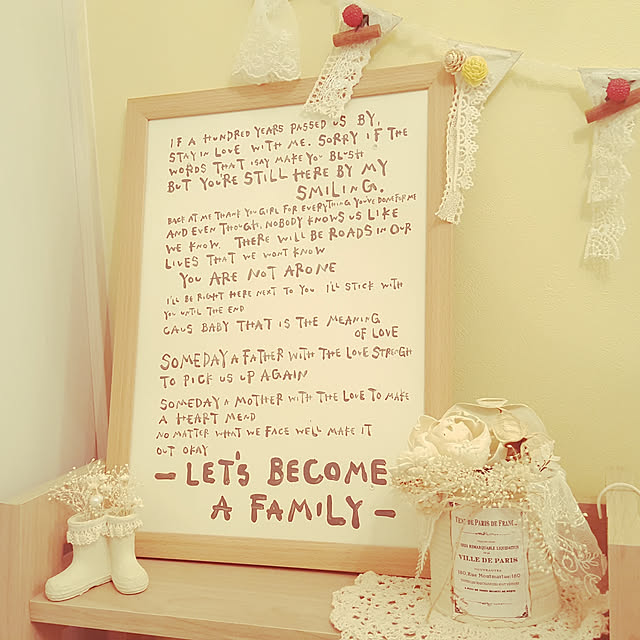 IF A HUNDRED YEARS PASSED US BY,
STAY IN LOVE WITH ME. SORRY IF THE
WORDS THAT I SAY MAKE YOU BLUSH
BUT YOU'RE STILL HERE BY MY
SMILING.
BACK AT ME THANK YOU GIRL FOR EVERYTHING YOU'VE DONE FOR ME
AND EVEN THOUGH. NOBODY KNOWS US LIKE
WE KNOW. THERE WILL BE ROADS IN OUR
LIVES THAT WE WONT KNOW
YOU ARE NOT ARONE
I'LL BE RIGHT HERE NEXT TO YOU I'LL STICK WITH
YOU UNTIL THE END
CAUS BABY THAT IS THE MEANING
OF LOVE
SOMEDAY A FATHER WITH THE LOVE STRENGHT
TO PICK US UP AGAIN
SOMEDAY A MOTHER WITH THE LOVE TO MAKE
A HEART MEND
NO MATTER WHAT WE FACE WE'LL MAKE IT
OUT OKAY
– LET'S BECOME
A FAMILY –
DE PARIS DE FRANC
VILLE DE PARIS
180, Rue Montmartre, 180